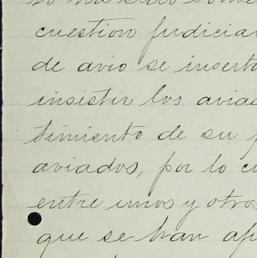 cuestion judicia
de avio se insert
insistir los avia
timiento de su
aviados, por lo c
entre unos y otros
que se han ap